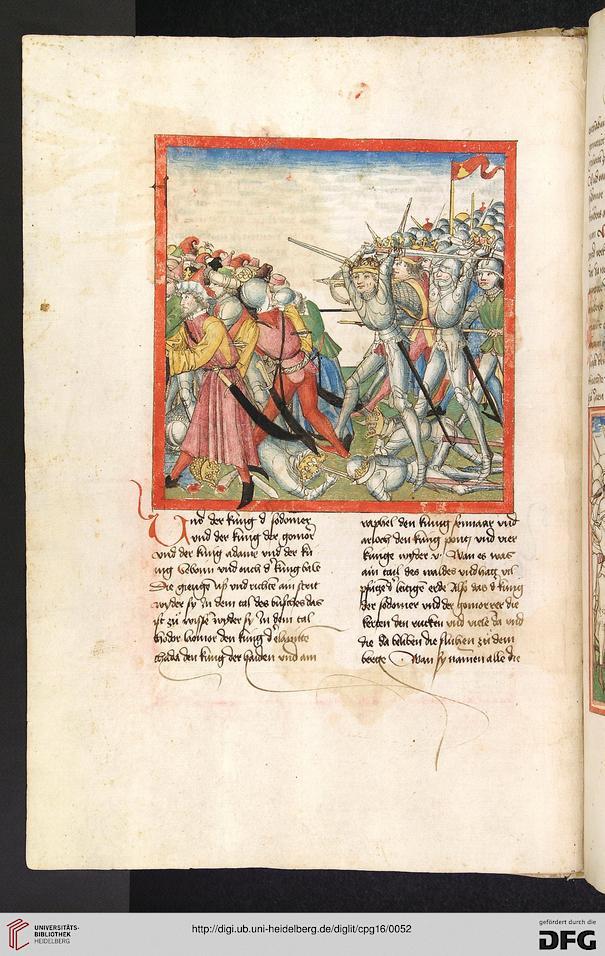 Und der kung d sodomier
vnd der kung der gomor
vnd der kung adame vnd der ku
ng Sebonn vnd ouch d kung bale
Die giengē vß vnd richten ain strit
wyder sy In dem tal des
ist zu wissē wyder sy In dem tal
kodor lamor den kung d elamite
thadal den kung der haiden vnd am
raphel den kung sennaar vnd
arioch den kung ponti vnd vier
kunge wyder v Wan es was
ain tail des waldes vnd hatt vil
pfützē leitige erde Also das d kung
der sodomer vnd der gomorrer die
kerten den rucken vnd viele da vnd
die da beliben die fluchen zu dem
berge Wan sy namen alle die
UNIVERSITÄTS-
BIBLIOTHEK
HEIDELBERG
http://digi.ub.uni-heidelberg.de/diglit/cpg16/0052
gefördert durch die
DFG